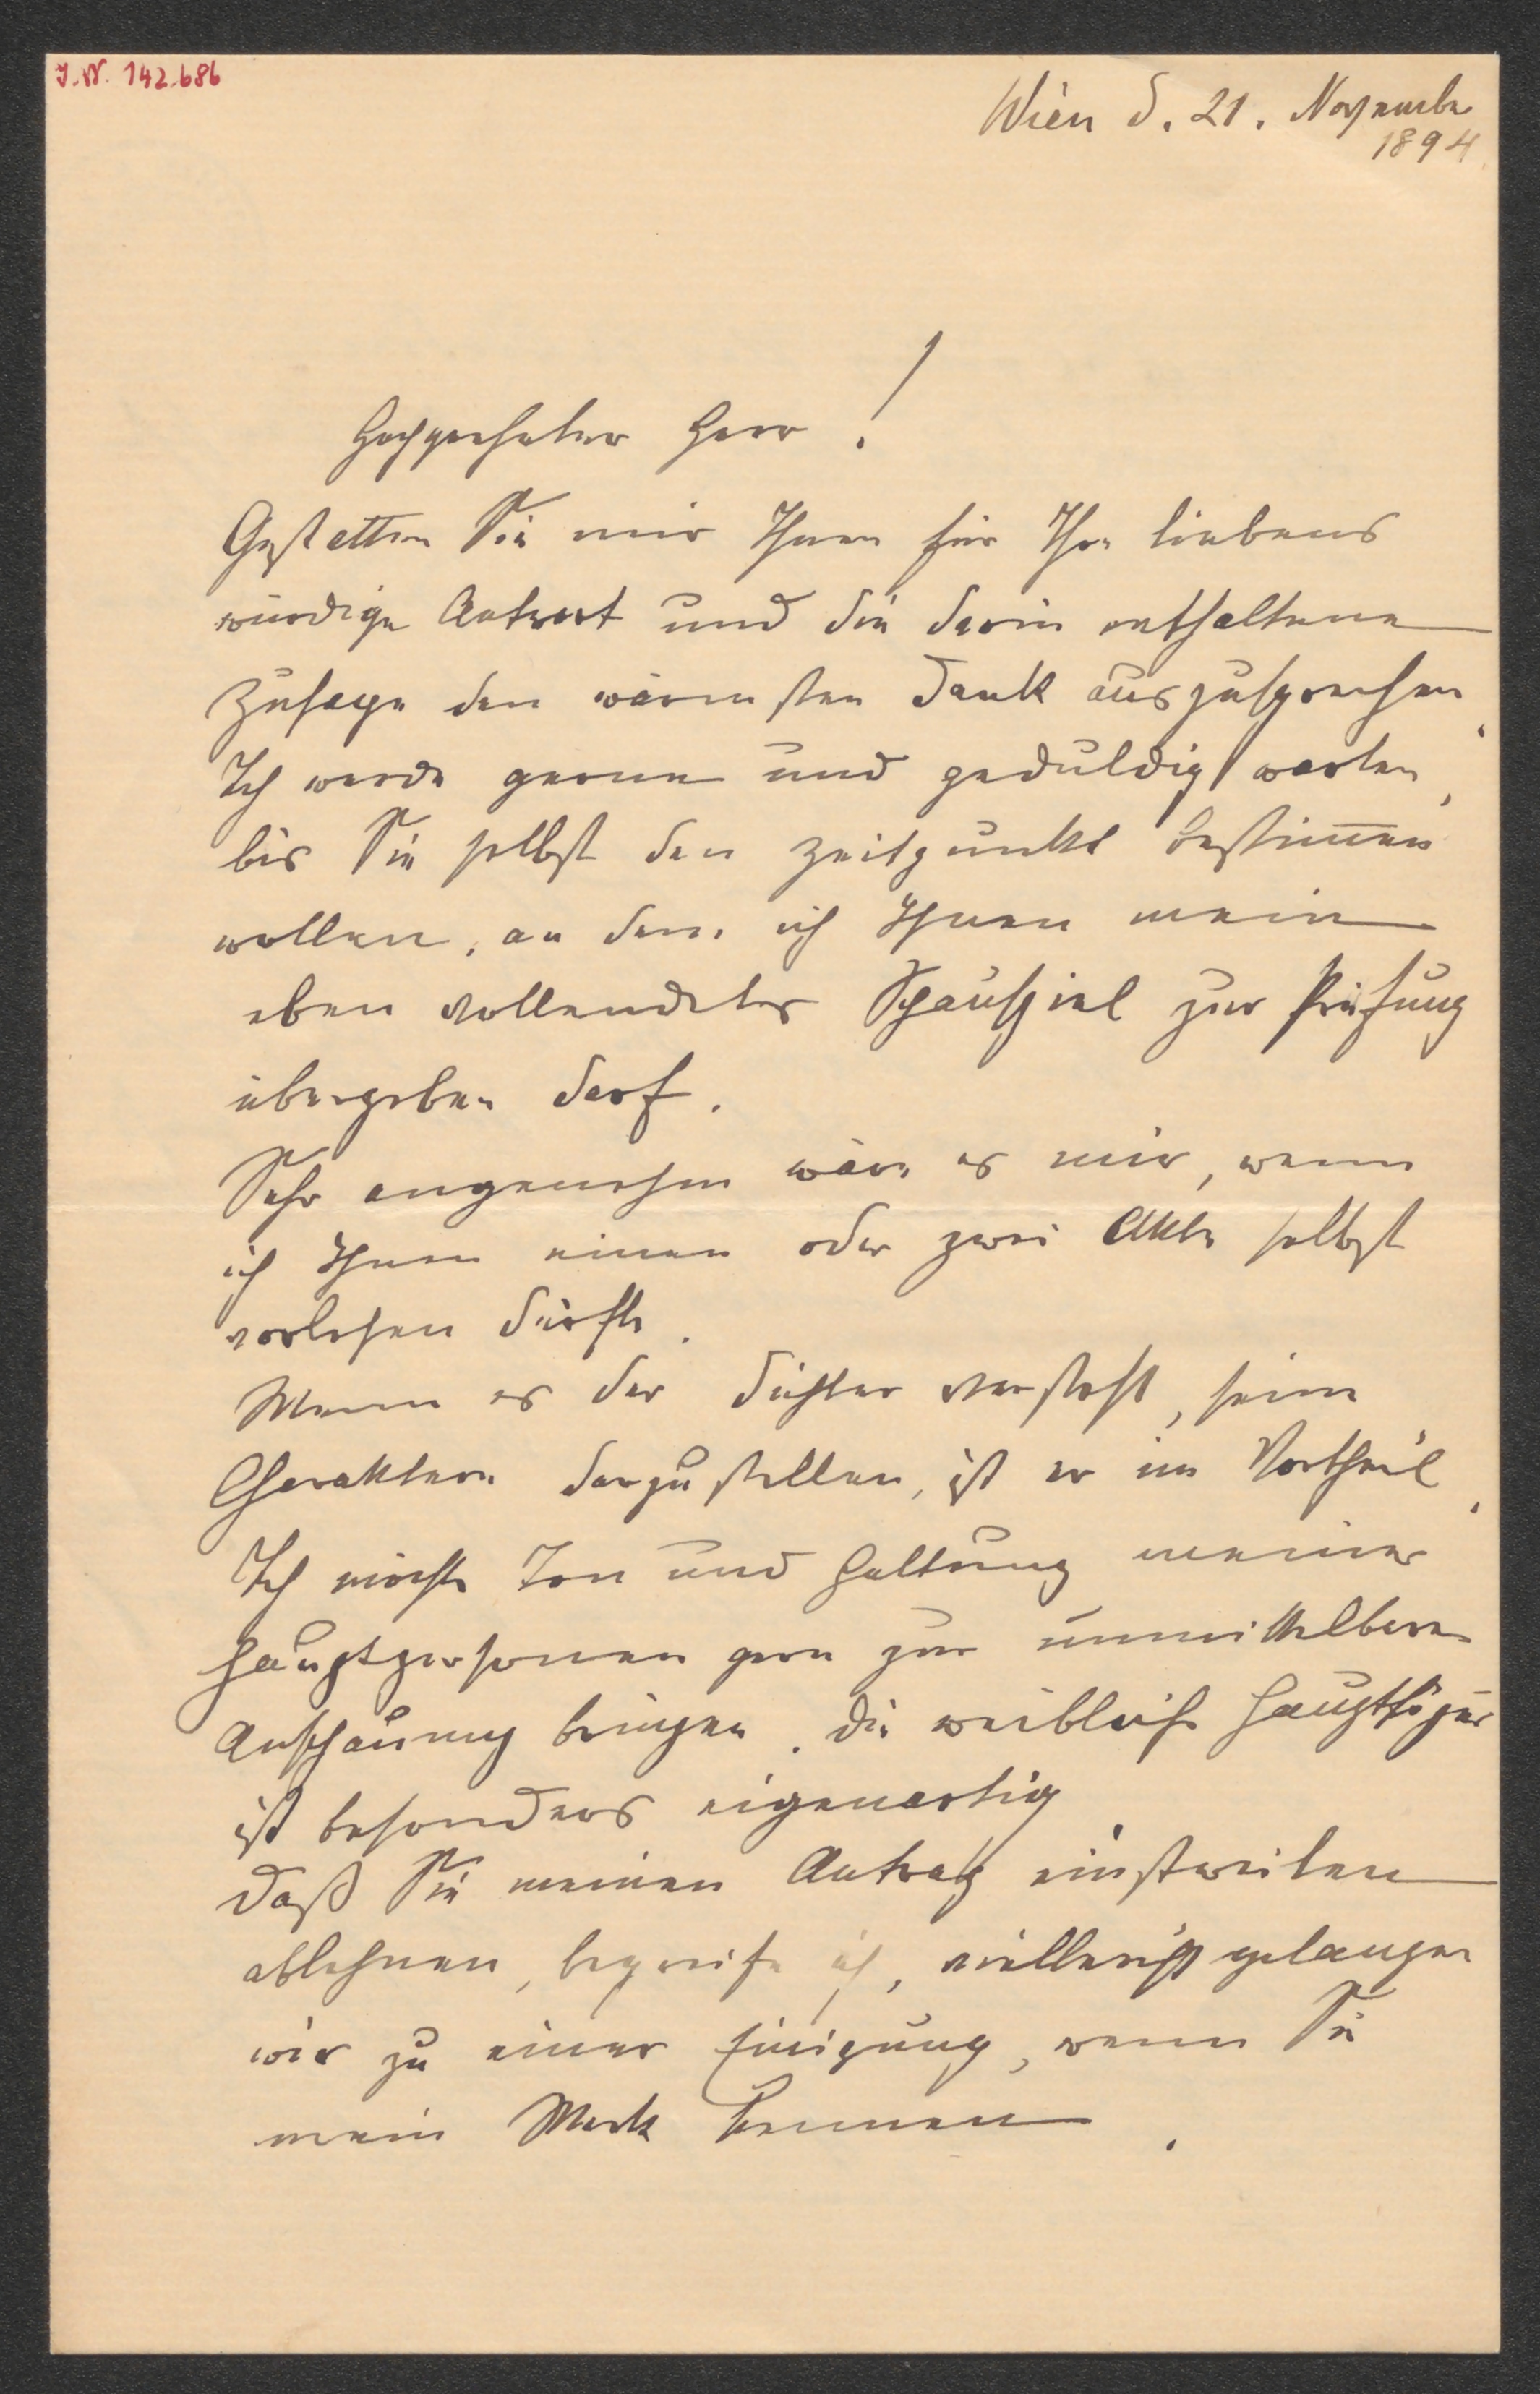 J.N. 142.686
Wien d. 21. November
1894
Hochgeehrter Herr!
Gestatten Sie mir Ihnen für Ihre liebens
würdige Antwort und die darin enthaltene
Zusage den wärmsten Dank auszusprechen.
Ich werde gerne und geduldig warten,
bis Sie selbst den Zeitpunkt bestim̅en
wollen, an dem ich Ihnen mein
eben vollendetes Schauspiel zur Prüfung
übergeben darf.
Sehr angenehm wäre es mir, wenn
ich Ihnen einen oder zwei Akte selbst
vorlesen dürfte.
Wenn es der Dichter versteht, seine
Charaktere darzustellen, ist er im Vortheil.
Ich möchte Ton und Haltung meiner
Hauptpersonen gern zur unmittelbaren
Anschauung bringen. Die weibliche Hauptfigur
ist besonders eigenartig
Daß Sie meinen Antrag einstweilen
ablehnen, begreife ich, vielleicht gelangen
wir zu einer Einigung, wenn Sie
mein Werk kennen.